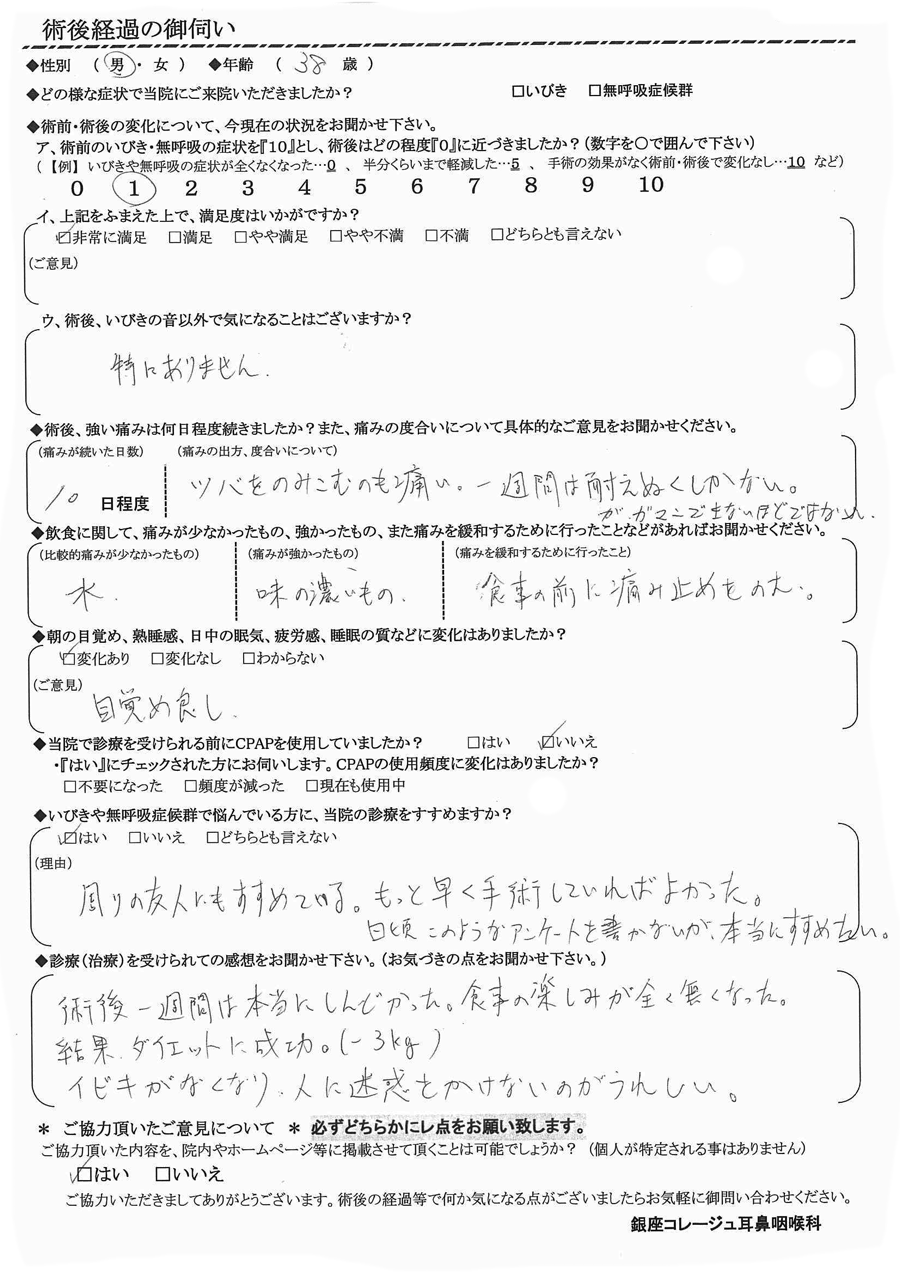 術後経過の御伺い
◆性別 （ 男 ・ 女 ） ◆年齢 （ 38 歳 ）
◆どの様な症状で当院にご来院いただきましたか？ □いびき □無呼吸症候群
◆術前・術後の変化について、今現在の状況をお聞かせ下さい。
ア、術前のいびき・無呼吸の症状を『10』とし、術後はどの程度『0』に近づきましたか？（数字を〇で囲んで下さい）
（【例】 いびきや無呼吸の症状が全くなくなった…0 、 半分くらいまで軽減した…5 、 手術の効果がなく術前・術後で変化なし…10 など）
0 1 2 3 4 5 6 7 8 9 10
イ、上記をふまえた上で、満足度はいかがですか？
☑非常に満足 □満足 □やや満足 □やや不満 □不満 □どちらとも言えない
（ご意見）
ウ、術後、いびきの音以外で気になることはございますか？
特にありません.
◆術後、強い痛みは何日程度続きましたか？また、痛みの度合いについて具体的なご意見をお聞かせください。
（痛みが続いた日数） （痛みの出方、度合いについて）
10 日程度 ツバをのみこむのも痛い。一週間は耐えぬくしかない。
が、ガマンできないほどではない.
◆飲食に関して、痛みが少なかったもの、強かったもの、また痛みを緩和するために行ったことなどがあればお聞かせください。
（比較的痛みが少なかったもの） （痛みが強かったもの） （痛みを緩和するために行ったこと）
水. 味の濃いもの. 食事の前に痛み止めをのむ。
◆朝の目覚め、熟睡感、日中の眠気、疲労感、睡眠の質などに変化はありましたか？
☑変化あり □変化なし □わからない
（ご意見）
目覚め良し.
◆当院で診療を受けられる前にCPAPを使用していましたか？ □はい ☑いいえ
・『はい』にチェックされた方にお伺いします。CPAPの使用頻度に変化はありましたか？
□不要になった □頻度が減った □現在も使用中
◆いびきや無呼吸症候群で悩んでいる方に、当院の診療をすすめますか？
☑はい □いいえ □どちらとも言えない
（理由）
周りの友人にもすすめている。もっと早く手術していればよかった。
日頃このようなアンケートを書かないが、本当にすすめたい。
◆診療（治療）を受けられての感想をお聞かせ下さい。（お気づきの点をお聞かせ下さい。）
術後一週間は本当にしんどかった。食事の楽しみが全く無くなった。
結果、ダイエットに成功。(-3kg)
イビキがなくなり、人に迷惑をかけないのがうれしい。
＊ ご協力頂いたご意見について ＊ 必ずどちらかにレ点をお願い致します。
ご協力頂いた内容を、院内やホームページ等に掲載させて頂くことは可能でしょうか？ （個人が特定される事はありません）
☑はい □いいえ
ご協力いただきましてありがとうございます。術後の経過等で何か気になる点がございましたらお気軽に御問い合わせください。
銀座コレージュ耳鼻咽喉科